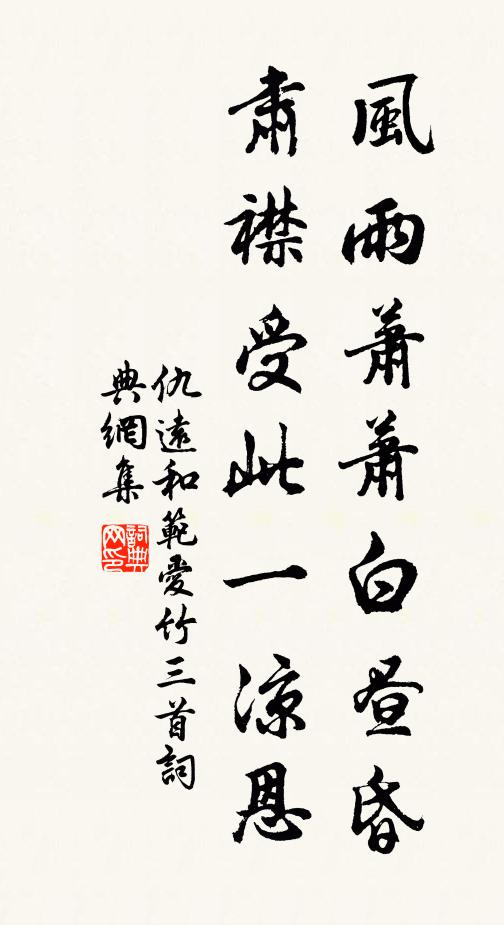 風雨蕭蕭白昼昏
肅襟受此一涼恩
仇遠和範愛竹三首詞
典網集
詞典网印